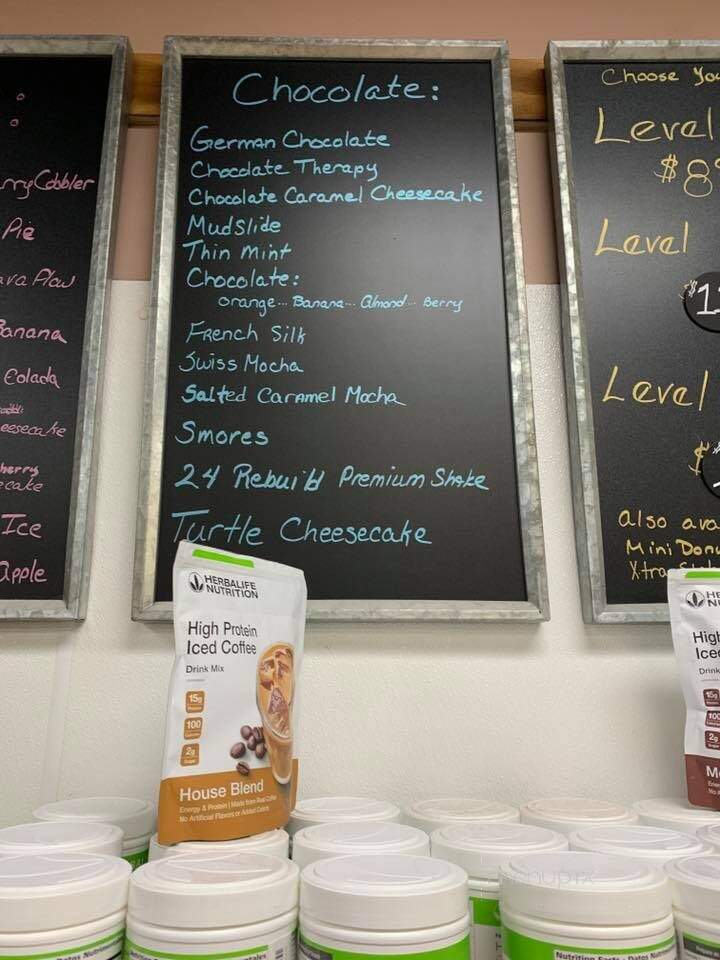 rry Cobbler
Pie
ava Plaw
Banana
Colada
eesecake
herry
ecake
Ice
apple
Chocolate:
German Chocolate
Chocolate Therapy
Chocolate Caramel Cheesecake
Mudslide
Thin Mint
Chocolate:
Orange... Banana... Almond... Berry
French Silk
Swiss Mocha
Salted Caramel Mocha
Smores
24 Rebuild Premium Shake
Turtle Cheesecake
Choose You
Level
$8
Level
$1
Level
$
also ava
Mini Donu
Xtra
HERBALIFE
NUTRITION
High Protein
Iced Coffee
Drink Mix
15g
100
2g
House Blend
Energy & Protein | Made from Real Coffee
No Artificial Flavors or Added Colors
HE
NU
High
Iced
Drink
15g
100
2g
Mo
Nutrition Facts / Datos Nu